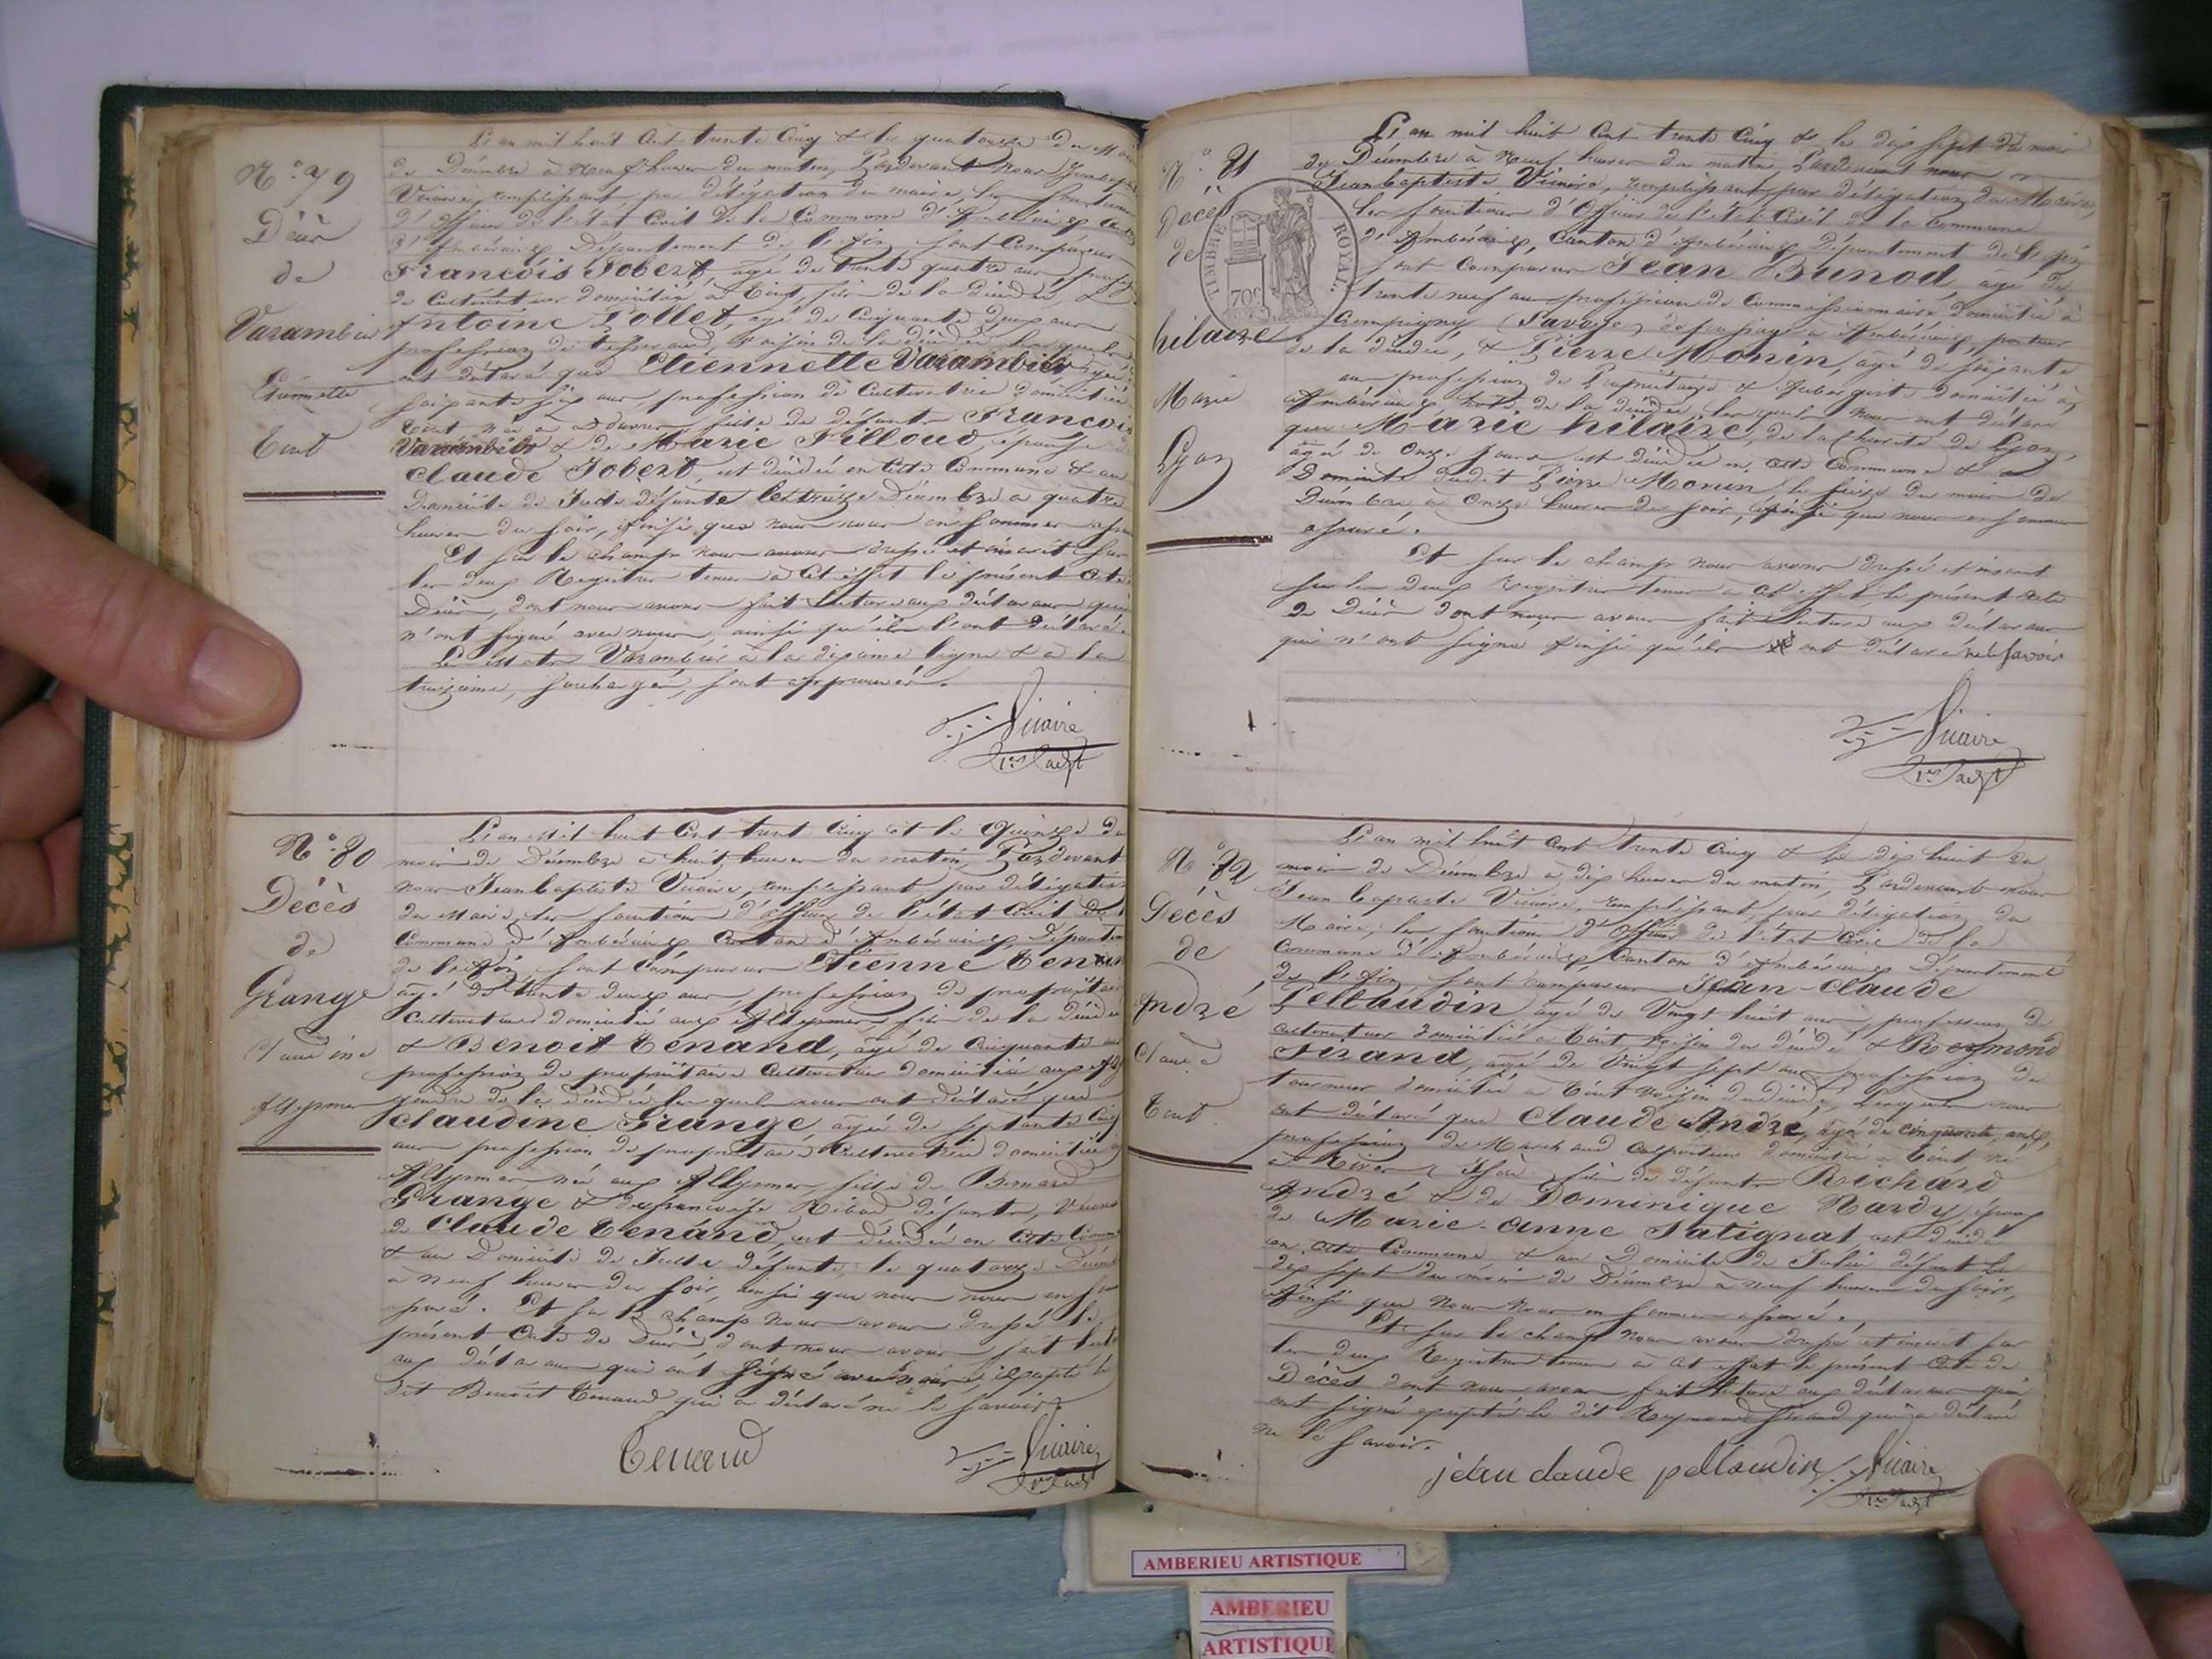 N.° 79
Décès
de
Varambier
Etiennette
Tiret
L'an mil huit Cent trente Cinq & le quatorze du mois
de Décembre à Neuf heures du matin, Pardevant Nous Jeanbaptiste
Vicaire, remplissant, par délégation du maire, les fonctions
d'officier de l'état Civil de la Commune d'Ambérieux Canton
d'Ambérieux, Département de l'Ain, sont Comparus
François Jobert, âgé de trente quatre ans, profession
de Cultivateur domicilié à Tiret, fils de la décédée, &
Antoine Pollet, âgé de Cinquante deux ans
profession de tisserand, voisin de la décédée, les quels
ont déclaré que Etiennette Varambier, âgée de
soixante six ans, profession de Cultivatrice domiciliée à
Tiret née à Douvres, fille de défunts François
Varambier & de Marie Filloud, épouse de
Claude Jobert, est décédée en Cette Commune & au
Domicile de Ladite défunte le treize Décembre à quatre
heures du soir, ainsi que nous nous en sommes assuré
Et sur le champ nous avons dressé et inscrit sur
les deux Registres tenus à Cet effet le présent acte
Décès, dont nous avons fait lecture aux déclarans qui
n'ont signé avec nous, ainsi qu'ils l'ont déclaré.
Les Mots Varambier à la dixième ligne & à la
treizième, surchargés, sont approuvés.
Vicaire
1er adjt
N.° 80
Décès
de
Grange
Claudine
Allymes
L'an Mil huit Cent trente Cinq et le Quinze du
mois de Décembre à huit heures du matin, Pardevant
nous Jeanbaptiste Vicaire, remplissant par délégation
du Maire, les fonctions d'officier de l'état Civil de la
Commune d'Ambérieux Canton d'Ambérieux, Département
de l'Ain, sont Comparus Etienne Tenand
âgé de trente deux ans, profession de propriétaire
Cultivateur domicilié aux Allymes, fils de la décédée
& Benoit Tenand, âgé de Cinquante ans
profession de propriétaire Cultivateur domicilié aux Allymes
gendre de la décédée les quels nous ont déclaré que
Claudine Grange, âgée de septante Cinq
ans profession de propriétaire Cultivatrice domiciliée aux
Allymes, née aux Allymes, fille de Bernard
Grange & de françoise Ribod défunts, Veuve
de Claude Tenand, est décédée en Cette Commune
& au Domicile de Ladite défunte, le quatorze Décembre
à neuf heures du soir, ainsi que nous nous en sommes
assuré. Et sur le champ nous avons dressé le
présent Acte de Décès, dont nous avons fait lecture
aux déclarans qui ont signé avec nous, excepté le
dit Benoit Tenand qui a déclaré ne le savoir.
Tenand
Vicaire
1er adjt
N.° 81
Décès
de
hilaire
Marie
Lyon
TIMBRE ROYAL.
70c
L'an mil huit Cent trente Cinq & le dix sept du mois
de Décembre à Neuf heures du matin, Pardevant nous
Jeanbaptiste Vicaire, remplissant, par délégation du Maire,
les fonctions d'Officier de l'état Civil de la Commune
d'Ambérieux, Canton d'Ambérieux Département de l'Ain
sont Comparus Jean Bunod, âgé de
trente neuf ans profession de Commissionnaire domicilié à
(Savoye) de passage à Ambérieux, porteur
de la décédée, & Pierre Monin, âgé de soixante
ans profession de Propriétaire & Aubergiste domicilié à
Ambérieux hôte de la décédée, les quels nous ont déclaré
que Marie hilaire, de la charité de Lyon,
âgée de Onze Jours est décédée en Cette Commune & au
Domicile dudit Pierre Monin, le seize du mois de
Décembre, à Onze heures du soir, ainsi que nous en sommes
assuré.
Et sur le champ nous avons dressé et inscrit
sur les deux Registres tenus à Cet effet, le présent acte
de Décès dont nous avons fait lecture aux déclarans
qui n'ont signé ainsi qu'ils ont déclaré ne le savoir
Vicaire
1er adjt
N.° 82
Décès
de
André
Claude
Tiret
L'an mil huit Cent trente Cinq & le dix huit du
mois de Décembre à dix heures du matin, Pardevant nous
Jean baptiste Vicaire, remplissant, par délégation du
Maire, les fonctions d'officier de l'état Civil de la
Commune d'Ambérieux, Canton d'Ambérieux Département
de l'Ain, sont Comparus Jean-Claude
Pellaudin, âgé de Vingt huit ans, profession de
cultivateur domicilié à Tiret voisin du décédé & Reymond
Firand, âgé de Vingt sept ans profession de
tourneur domicilié à Tiret voisin du décédé, lesquels nous
ont déclaré que Claude André, âgé de cinquante ans,
profession de Marchand Colporteur domicilié à Tiret né
à fils de défunts Richard
André & de Dominique Nardy, époux
de Marie-Anne Satignat, est décédé
en Cette Commune & au Domicile de Ledit défunt le
dix sept du mois de Décembre à neuf heures du soir,
Ainsi que Nous Nous en sommes assuré.
Et sur le champ Nous avons dressé et inscrit sur
les deux Registres tenus à Cet effet le présent Acte de
Décès dont nous avons fait lecture aux déclarans qui
ont signé excepté le dit Reymond Firand qui a déclaré
ne le savoir.
jean claude pellaudin
Vicaire
1er adjt
AMBERIEU ARTISTIQUE
AMBERIEU
ARTISTIQUE